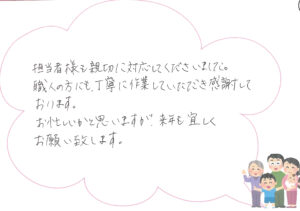 担当者様も親切に対応してくださいました。
職人の方にも、丁寧に作業していただき感謝して
おります。
お忙しいかと思いますが、来年も宜しく
お願い致します。